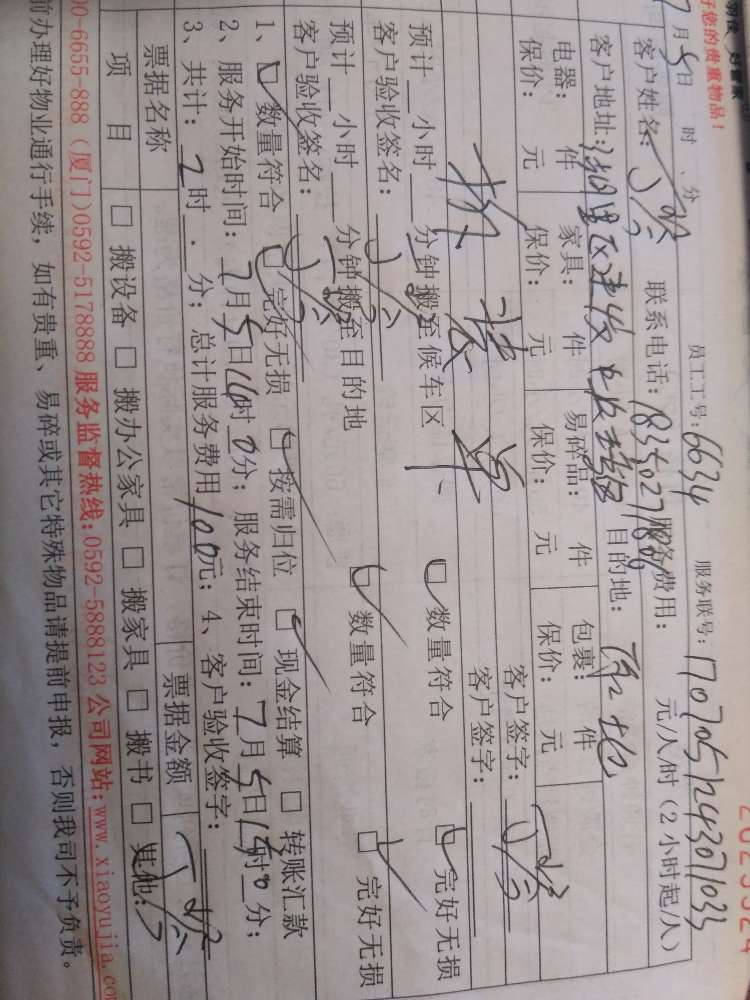 好您的贵重物品！ 2023324
7月5日 时 分 员工工号：6634 服务联号：170705124307033
客户姓名： 联系电话： 服务费用： 元/人/时（2小时起/人）
客户地址： 目的地：
电器： 件 家具： 件 易碎品： 件 包裹： 件 客户签字：
保价： 元 保价： 元 保价： 元 保价： 元 客户签字：
拆装单
预计 小时 分钟搬至候车区 □ 数量符合 □ 完好无损
客户验收签名：
预计 小时 分钟搬至目的地 □ 数量符合 □ 完好无损
客户验收签名：
1、□ 数量符合 □ 完好无损 □ 按需归位 □ 现金结算 □ 转账汇款
2、服务开始时间：7月5日16时0分；服务结束时间：7月5日18时0分；
3、共计：2时 分；总计服务费用100元；4、客户验收签字：
票据名称 票据金额
项目 □ 搬设备 □ 搬办公家具 □ 搬家具 □ 搬书 □ 其他：
00-6655-888（厦门）0592-5178888 服务监督热线：0592-5888123 公司网站：www.xiaoyujia.co
前办理好物业通行手续，如有贵重、易碎或其它特殊物品请提前申报，否则我司不予负责。